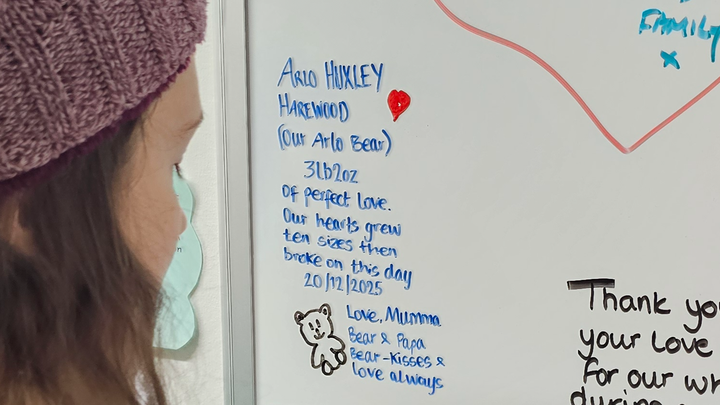 ARLO HUXLEY
HAREWOOD
(Our Arlo Bear)
3lb2oz
Of perfect love.
Our hearts grew
ten sizes then
broke on this day
20/12/2025
Love, Mumma
Bear & Papa
Bear-Kisses &
love always
FAMILY
x
Thank you
your Love
for our
during